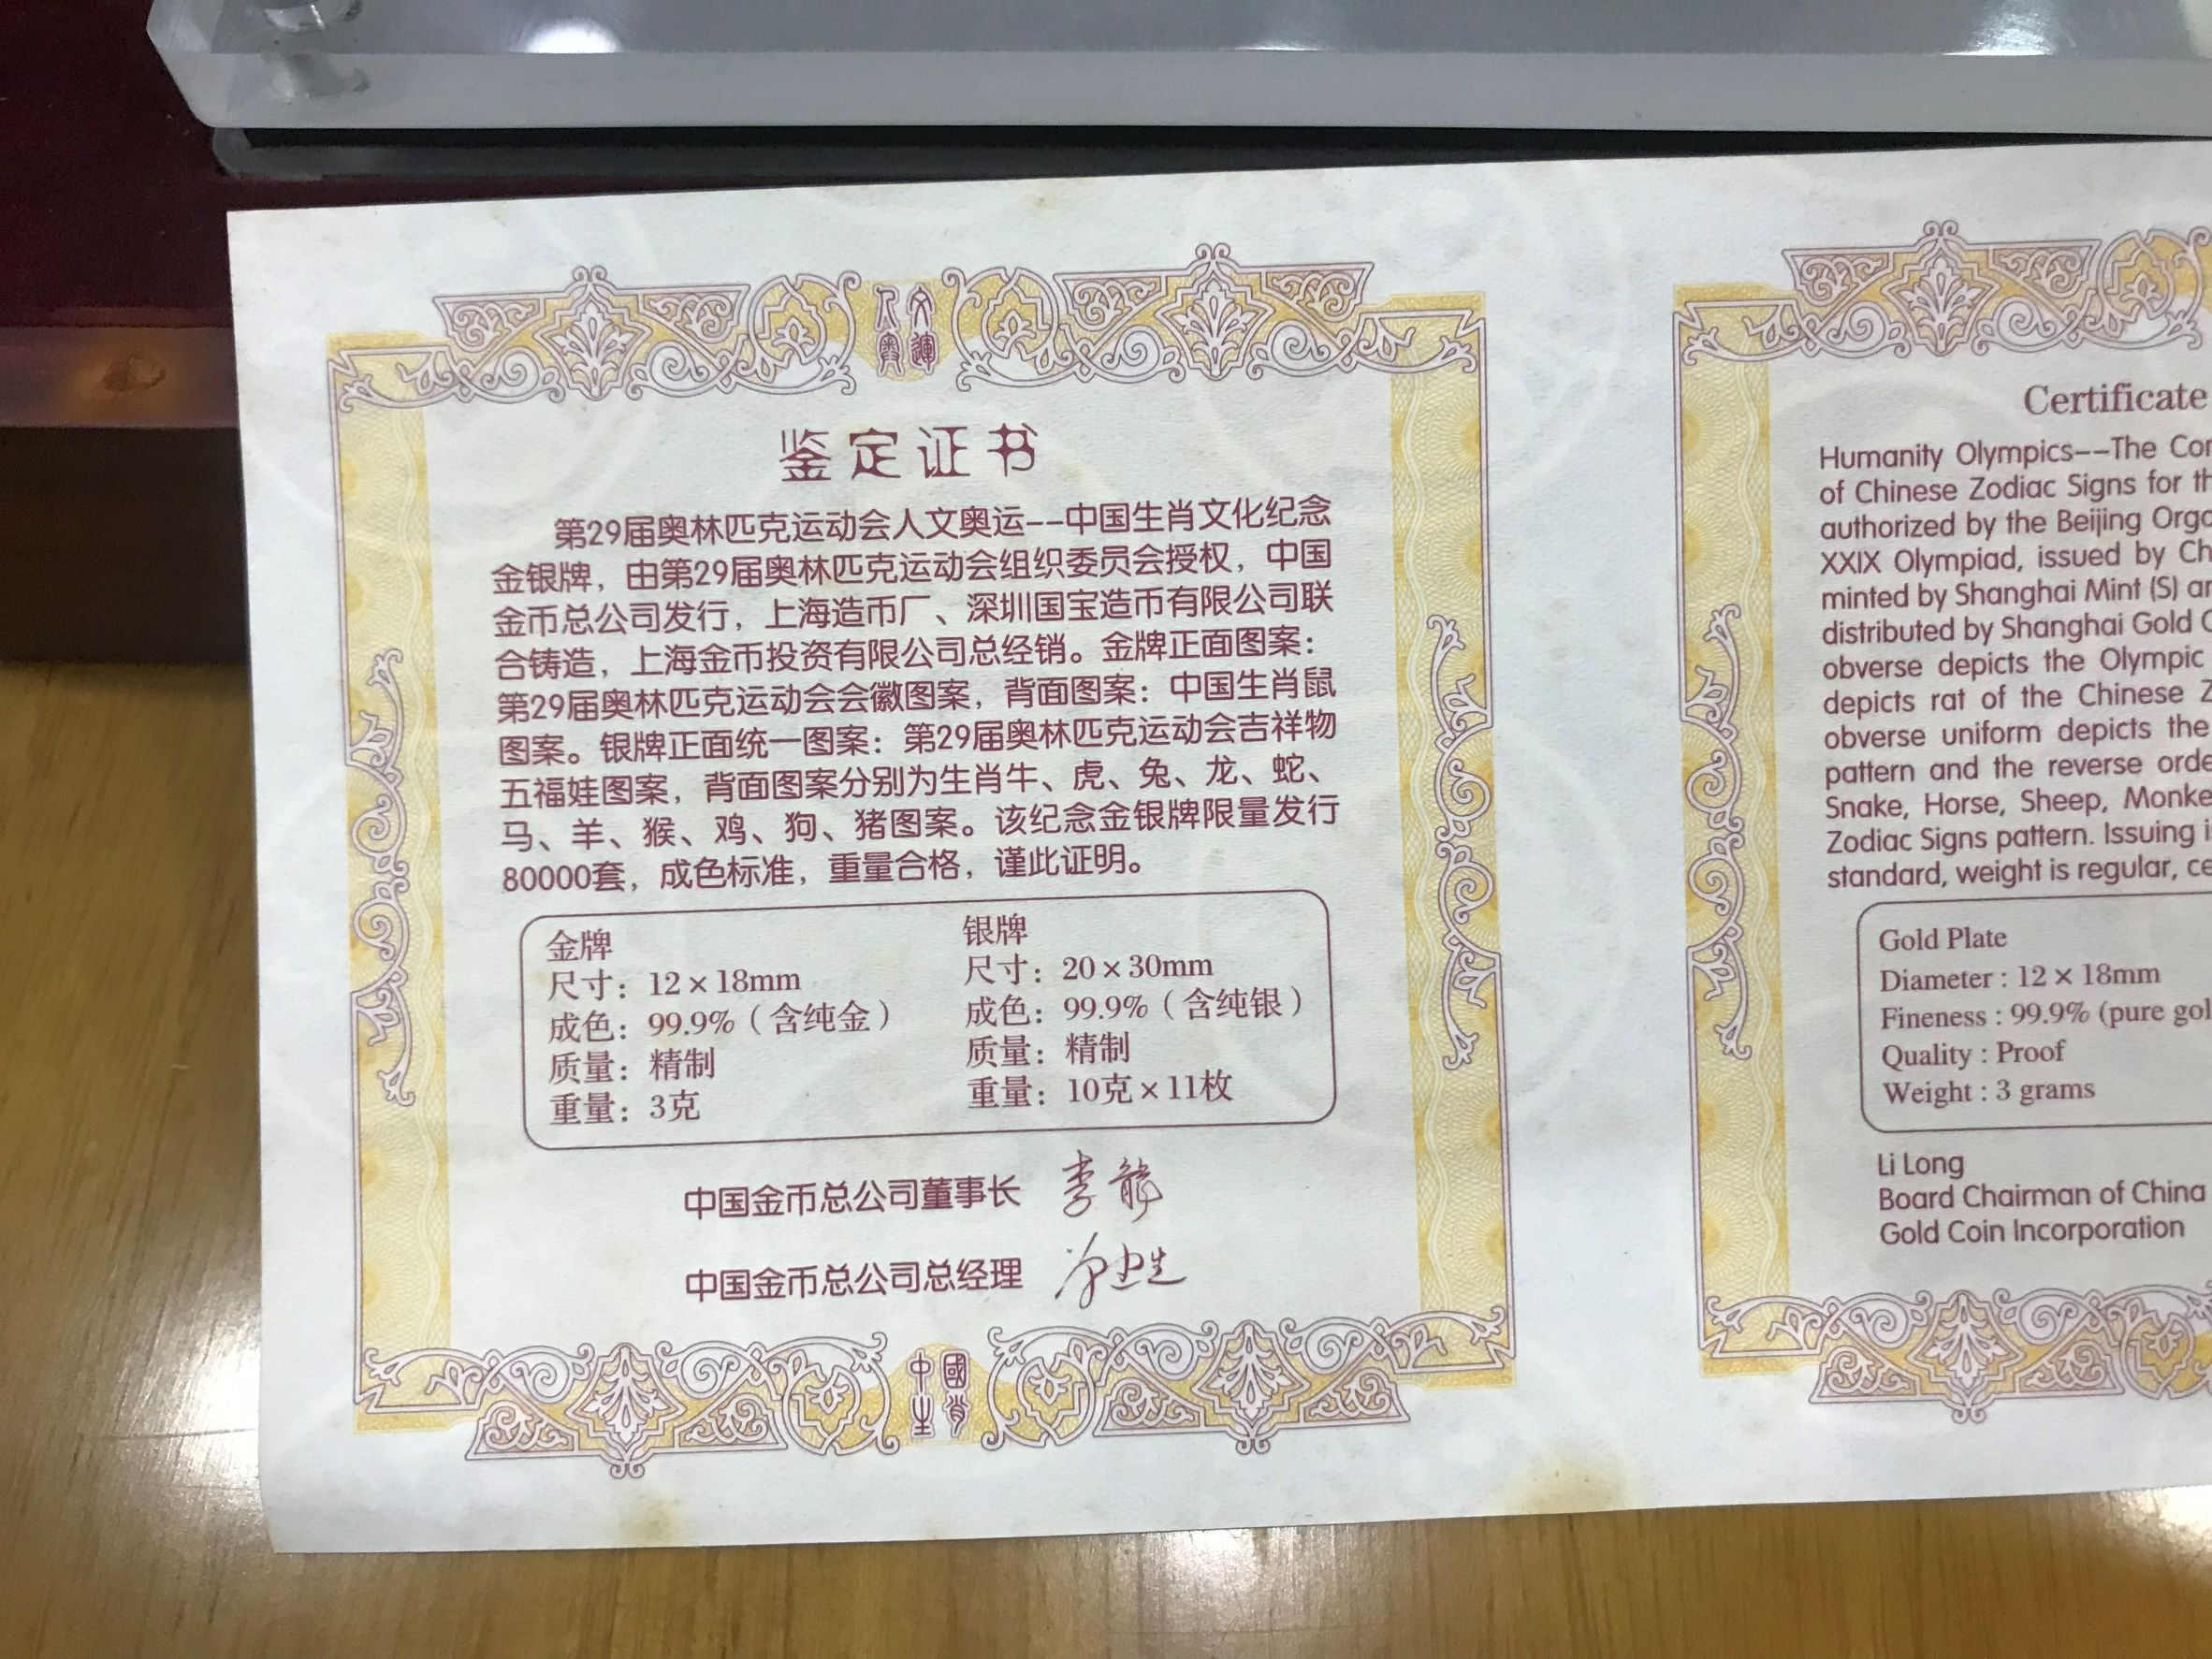 人文
奥運
鉴定证书
第29届奥林匹克运动会人文奥运--中国生肖文化纪念
金银牌，由第29届奥林匹克运动会组织委员会授权，中国
金币总公司发行，上海造币厂、深圳国宝造币有限公司联
合铸造，上海金币投资有限公司总经销。金牌正面图案：
第29届奥林匹克运动会会徽图案，背面图案：中国生肖鼠
图案。银牌正面统一图案：第29届奥林匹克运动会吉祥物
五福娃图案，背面图案分别为生肖牛、虎、兔、龙、蛇、
马、羊、猴、鸡、狗、猪图案。该纪念金银牌限量发行
80000套，成色标准，重量合格，谨此证明。
金牌
尺寸：12×18mm
成色：99.9%（含纯金）
质量：精制
重量：3克
银牌
尺寸：20×30mm
成色：99.9%（含纯银）
质量：精制
重量：10克×11枚
中国金币总公司董事长
中国金币总公司总经理
中國
生肖
Certificate
Humanity Olympics--The
of Chinese Zodiac Signs for
authorized by the Beijing
XXIX Olympiad, issued by
minted by Shanghai Mint (S)
distributed by Shanghai Gold
obverse depicts the Olympic
depicts rat of the Chinese
obverse uniform depicts the
pattern and the reverse
Snake, Horse, Sheep,
Zodiac Signs pattern. Issuing
standard, weight is regular,
Gold Plate
Diameter : 12×18mm
Fineness : 99.9% (pure
Quality : Proof
Weight : 3 grams
Li Long
Board Chairman of China
Gold Coin Incorporation